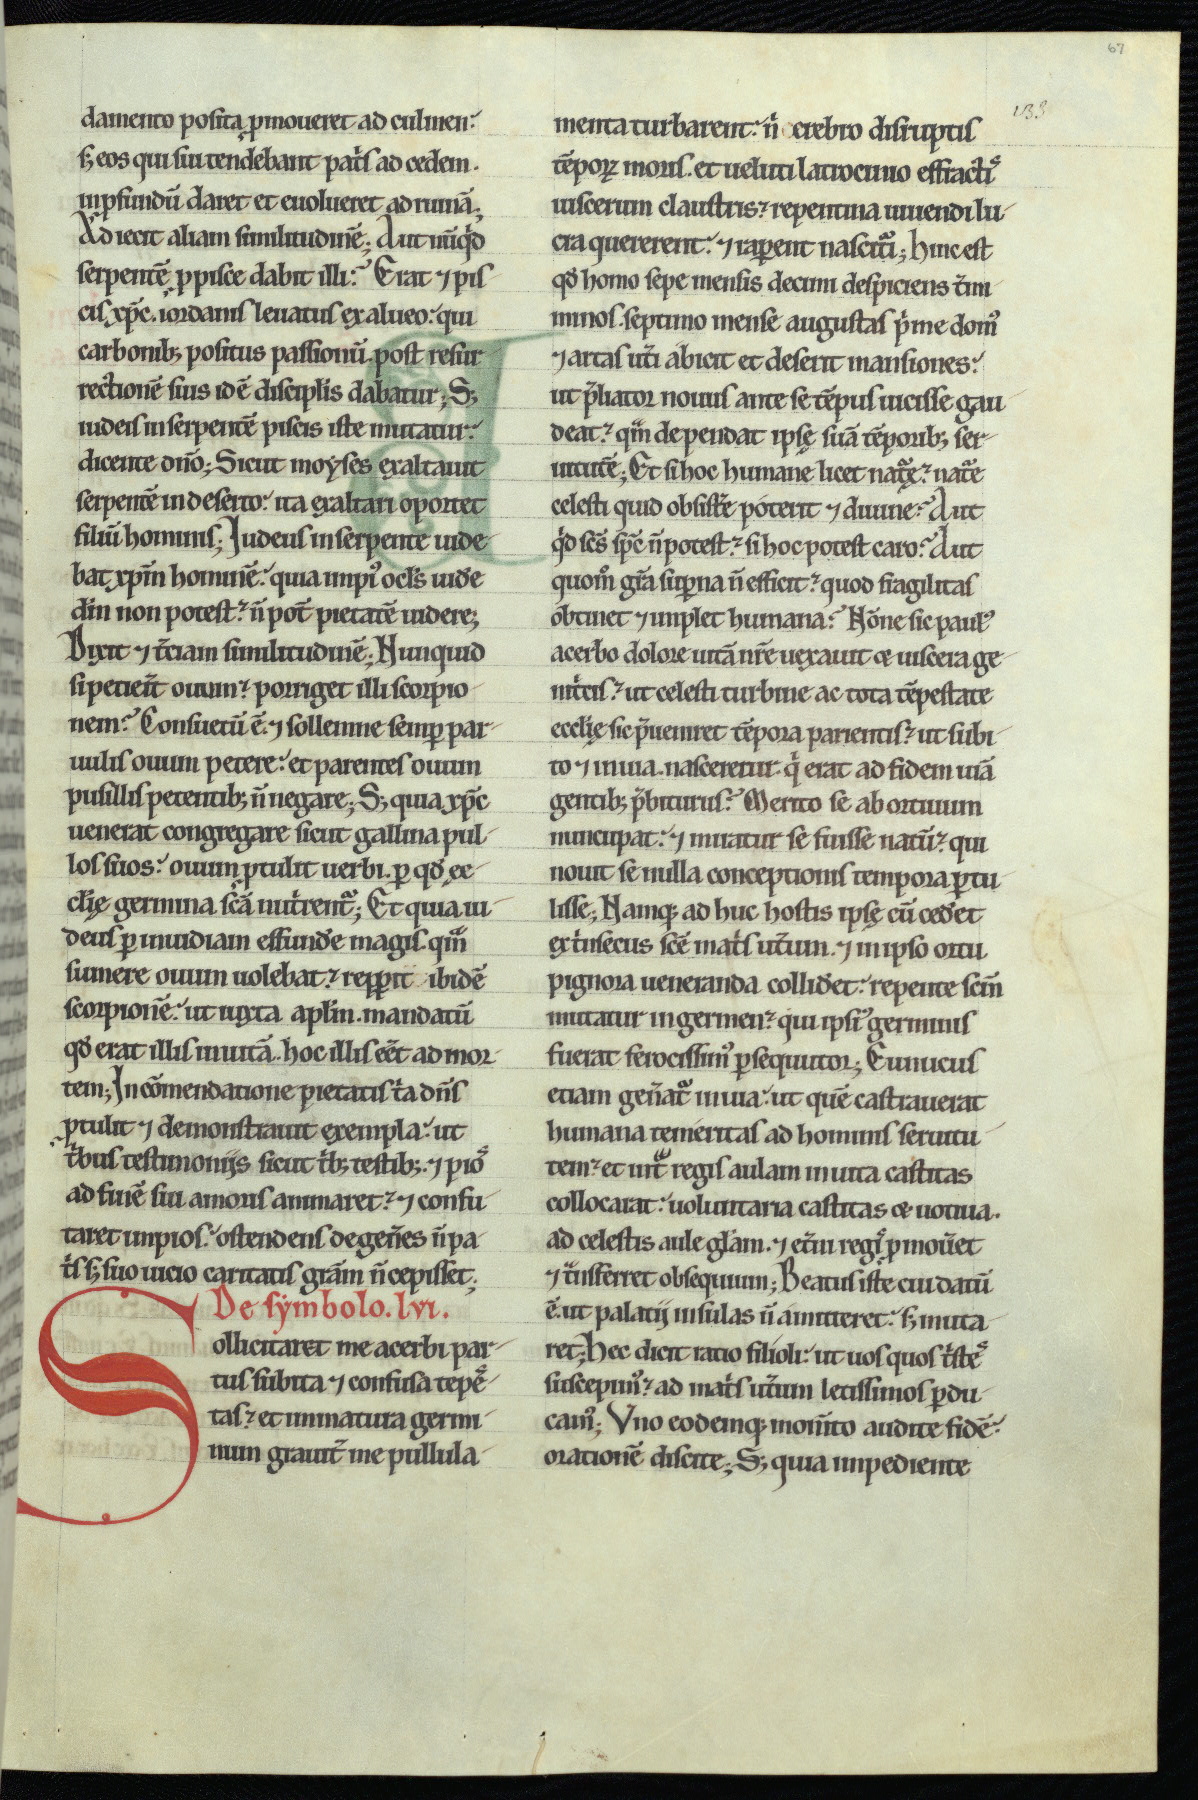 67
133
damento posita ꝓmoueret ad culmen.
s; eos qui sui tendebant pat̄s ad cedem.
in ꝓfundū daret et euolueret ad ruinā;
Adiecit aliam similitudinē; Aut nūq̇d
serpentē ꝓ pisce dabit illi? Erat ⁊ pis
cis xp̄c. iordanis leuatus ex alueo: qui
carbonib; positus passionū. post resur
rect̄ionē suis idē discipl̄is dabatur; S;
iudeis in serpentē piscis iste mutatur.
dicente dn̄o; Sicut moyses exaltauit
serpentē in deserto: ita exaltari oportet
filiū hominis; Iudeus in serpente uide
bat xp̄m hominē: quia impi᷒ ocl̄s uide
d̄m non potest? n̄ pot̄ pietatē uidere;
Dixit ⁊ t̄ciam similitudinē; Nunquid
si petierit̄ ouum? porriget illi scorpio
nem? Consuetū ē. ⁊ sollemne semꝑ par
uulis ouum petere: et parentes ouum
pusillis petentib; n̄ negare; S; quia xp̄c
uenerat congregare sicut gallina pul
los suos: ouum ꝓtulit uerbi. ꝑ qđ ęc
cl̄ię germina sc̄a nut̄rent᷒; Et quia iu
deus ꝑ inuidiam effunde magis. qm̄
sumere ouum uolebat? repꝑit ibidē
scorpionē: ut iuxta apl̄m. mandatū
qđ erat illis in uitā. hoc illis eēt ad mor
tem; In cōmendatione pietatis t̄a dn̄s
ꝓtulit ⁊ demonstrauit exempla: ut
t̄bus testimonijs sicut t̄b; testib;. ⁊ pio᷒
ad finē sui amoris animaret? ⁊ confu
taret impios. ostendens degen̄es n̄ pa
t̄s s; suo uicio caritatis grām n̄ cepisset;
De sẏmbolo. lvi.
Sollicitaret me acerbi par
tus subita ⁊ confusa tēpes
tas? et inmatura germi
num grauit̄ me pullula
menta turbarent: n̄ crebro disruptis
tēporꝝ moris. et ueluti latrocinio effracti᷒
uiscerum claustris? repentina uiuendi lu
cra quererent: ⁊ raꝑent nascit᷒i; hinc est
qđ homo sepe mensis decimi despiciens t̄mi
minos. septimo mense augustas p̄me dom᷒
⁊ artas ut̄i abicit et deserit mansiones:
ut p̄liator nouus ante se tēpus uicisse gau
deat? qm̄ dependat ipsę suā tēporib; ser
uitutē; Et si hoc humane licet nat᷒ę? nat᷒e
celesti quid obsist̄e poterit ⁊ diuine? Aut
q̇d sc̄s sp̄c n̄ potest? si hoc potest caro? Aut
quom̄ gr̄a suꝑna n̄ efficit? quod fragilitas
obtinet ⁊ implet humana? Nōne sic paul᷒
acerbo dolore uitā nr̄e uexauit ⁊ uiscera ge
nit̄cis? ut celesti turbine ac tota tēpestate
ecclie sic p̄ueniret tēpora parientis? ut subi
to ⁊ in uia. nasceretur. q̇ erat ad fidem uiā
gentib; p̄biturus? Merito se abortiuum
nuncupat: ⁊ miratur se fuisse natū? qui
nouit se nulla conceptionis tempora ꝑtu
lisse; Namq; ad huc hostis ipsę cū cedet
ext̄nsecus scē mat̄s ut̄um. ⁊ in ipso ortu
pignora ueneranda collidet: repente scīm
mutatur in germen? qui ipsi᷒ germinis
fuerat ferocissim᷒ ꝑsequutor; Eunucus
etiam gen̄at᷒ in uia: ut quē castrauerat
humana temeritas ad hominis seruitu
tem? et int̄ regis aulam inuita castitas
collocarat: uoluntaria castitas ⁊ uotiua.
ad celestis aule glām. ⁊ et̄ni regi᷒ ꝓmou̅et
⁊ t᷒nsferret obsequium; Beatus iste cui datū
ē. ut palatij insulas n̄ amitteret: s; muta
ret; Hec dicit ratio filioli: ut uos quos t̄ste᷒
suscepim᷒? ad mat̄s ut̄um letissimos ꝑdu
cam᷒; Vno eodemq; mom̄to audite fidē.
orationē discite; S; quia inpediente